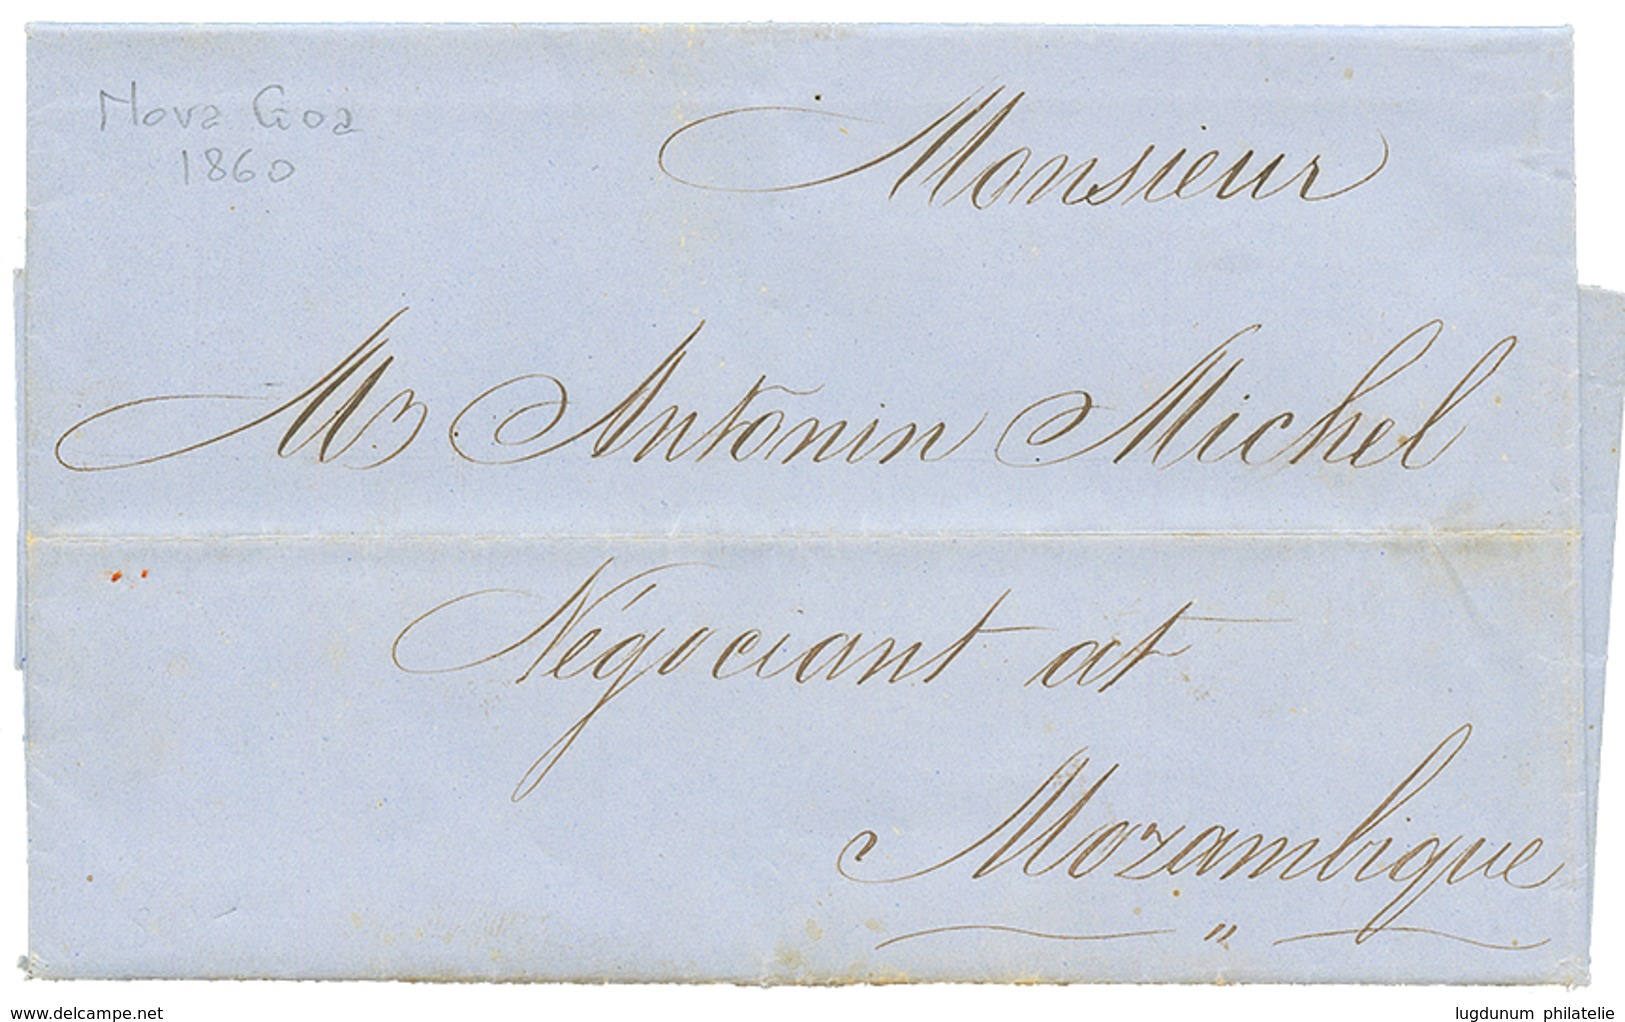 Nova Goa
1860
Monsieur
Mr Antonin Michel
Négociant at
Mozambique
"
www.delcampe.net
lugdunum philatelie